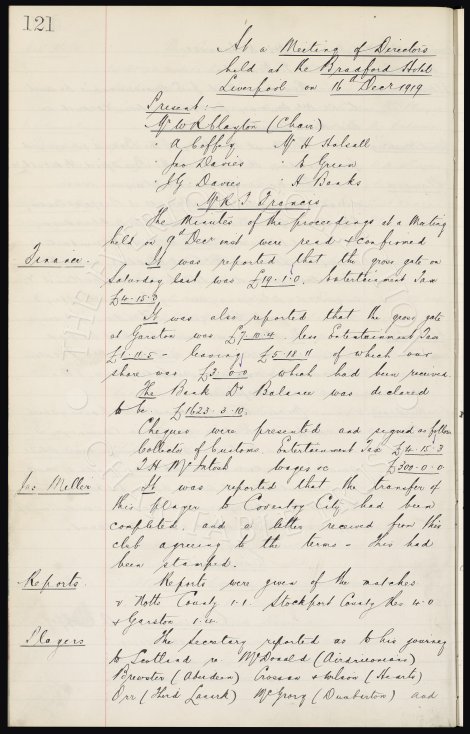 121
At a Meeting of Directors
held at the Bradford Hotel
Liverpool on 16th Decr 1919
Present :-
Mr W R Clayton (Chair)
" A Coffey Mr H Halsall
Jas Davies " E Green
J G Davies " H Banks
Mr R T Francis
The Minutes of the proceedings at a Meeting
held on 9th Dec inst were read & confirmed
Finance. It was reported that the gross gate on
Saturday last was £19.1.0. Entertainment Tax
£4.15.3
It was also reported that the gross gate
at Garston was £7.10.4 less Entertainment Tax
£1.11.5 - leaving £5.18.11 of which our
share was £3.0.0 which had been received.
The Bank Dr Balance was declared
to be £1623.3.10.
Cheques were presented and signed as follows
Collector of Customs. Entertainment Tax £4.15.3
T. H. McIntosh wages &c £300.0.0
Jas Miller It was reported that the transfer of
this player to Coventry City had been
completed, and a letter received from this
club agreeing to the terms - this had
been stamped.
Reports Reports were given of the matches
v Notts County 1-1. Stockport County Res 4-0
& Garston 1-4.
Players The Secretary reported as to his journey
to Scotland re McDonald (Airdrieonians)
Brewster (Aberdeen) Crossan & Wilson (Hearts)
Orr (Third Lanark) McGrory (Dumbarton) and